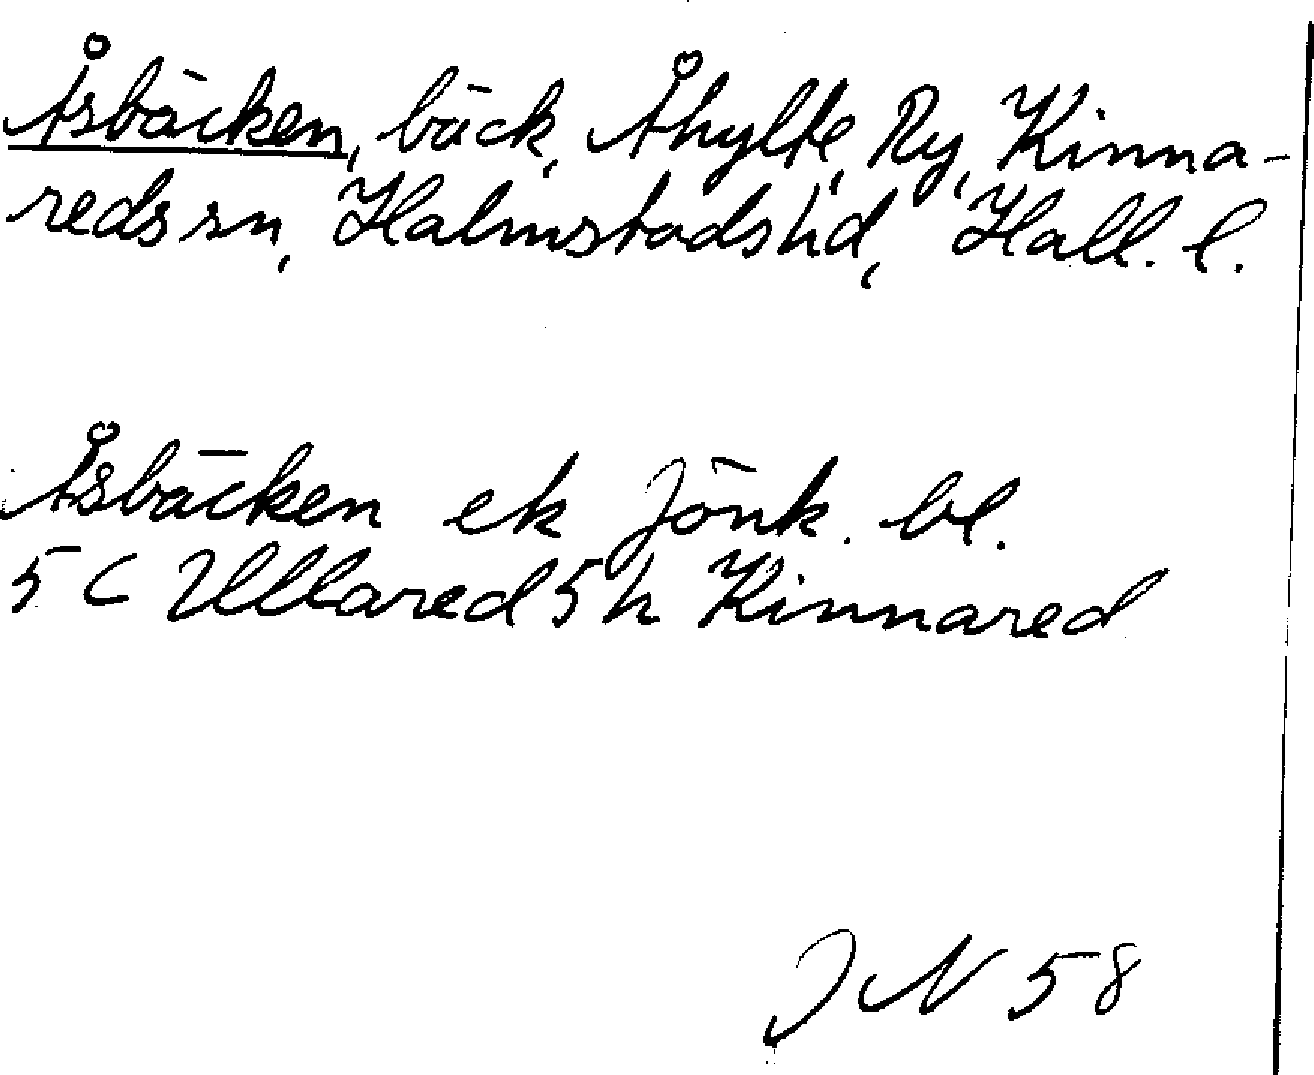 Åsbäcken, bäck, Åhylte, Ry, Kinna-
reds sn, Halmstads hd, Hall. l.
Åsbäcken ek Jönk. bl.
5 C Ullared 5 h Kinnared
J N 58